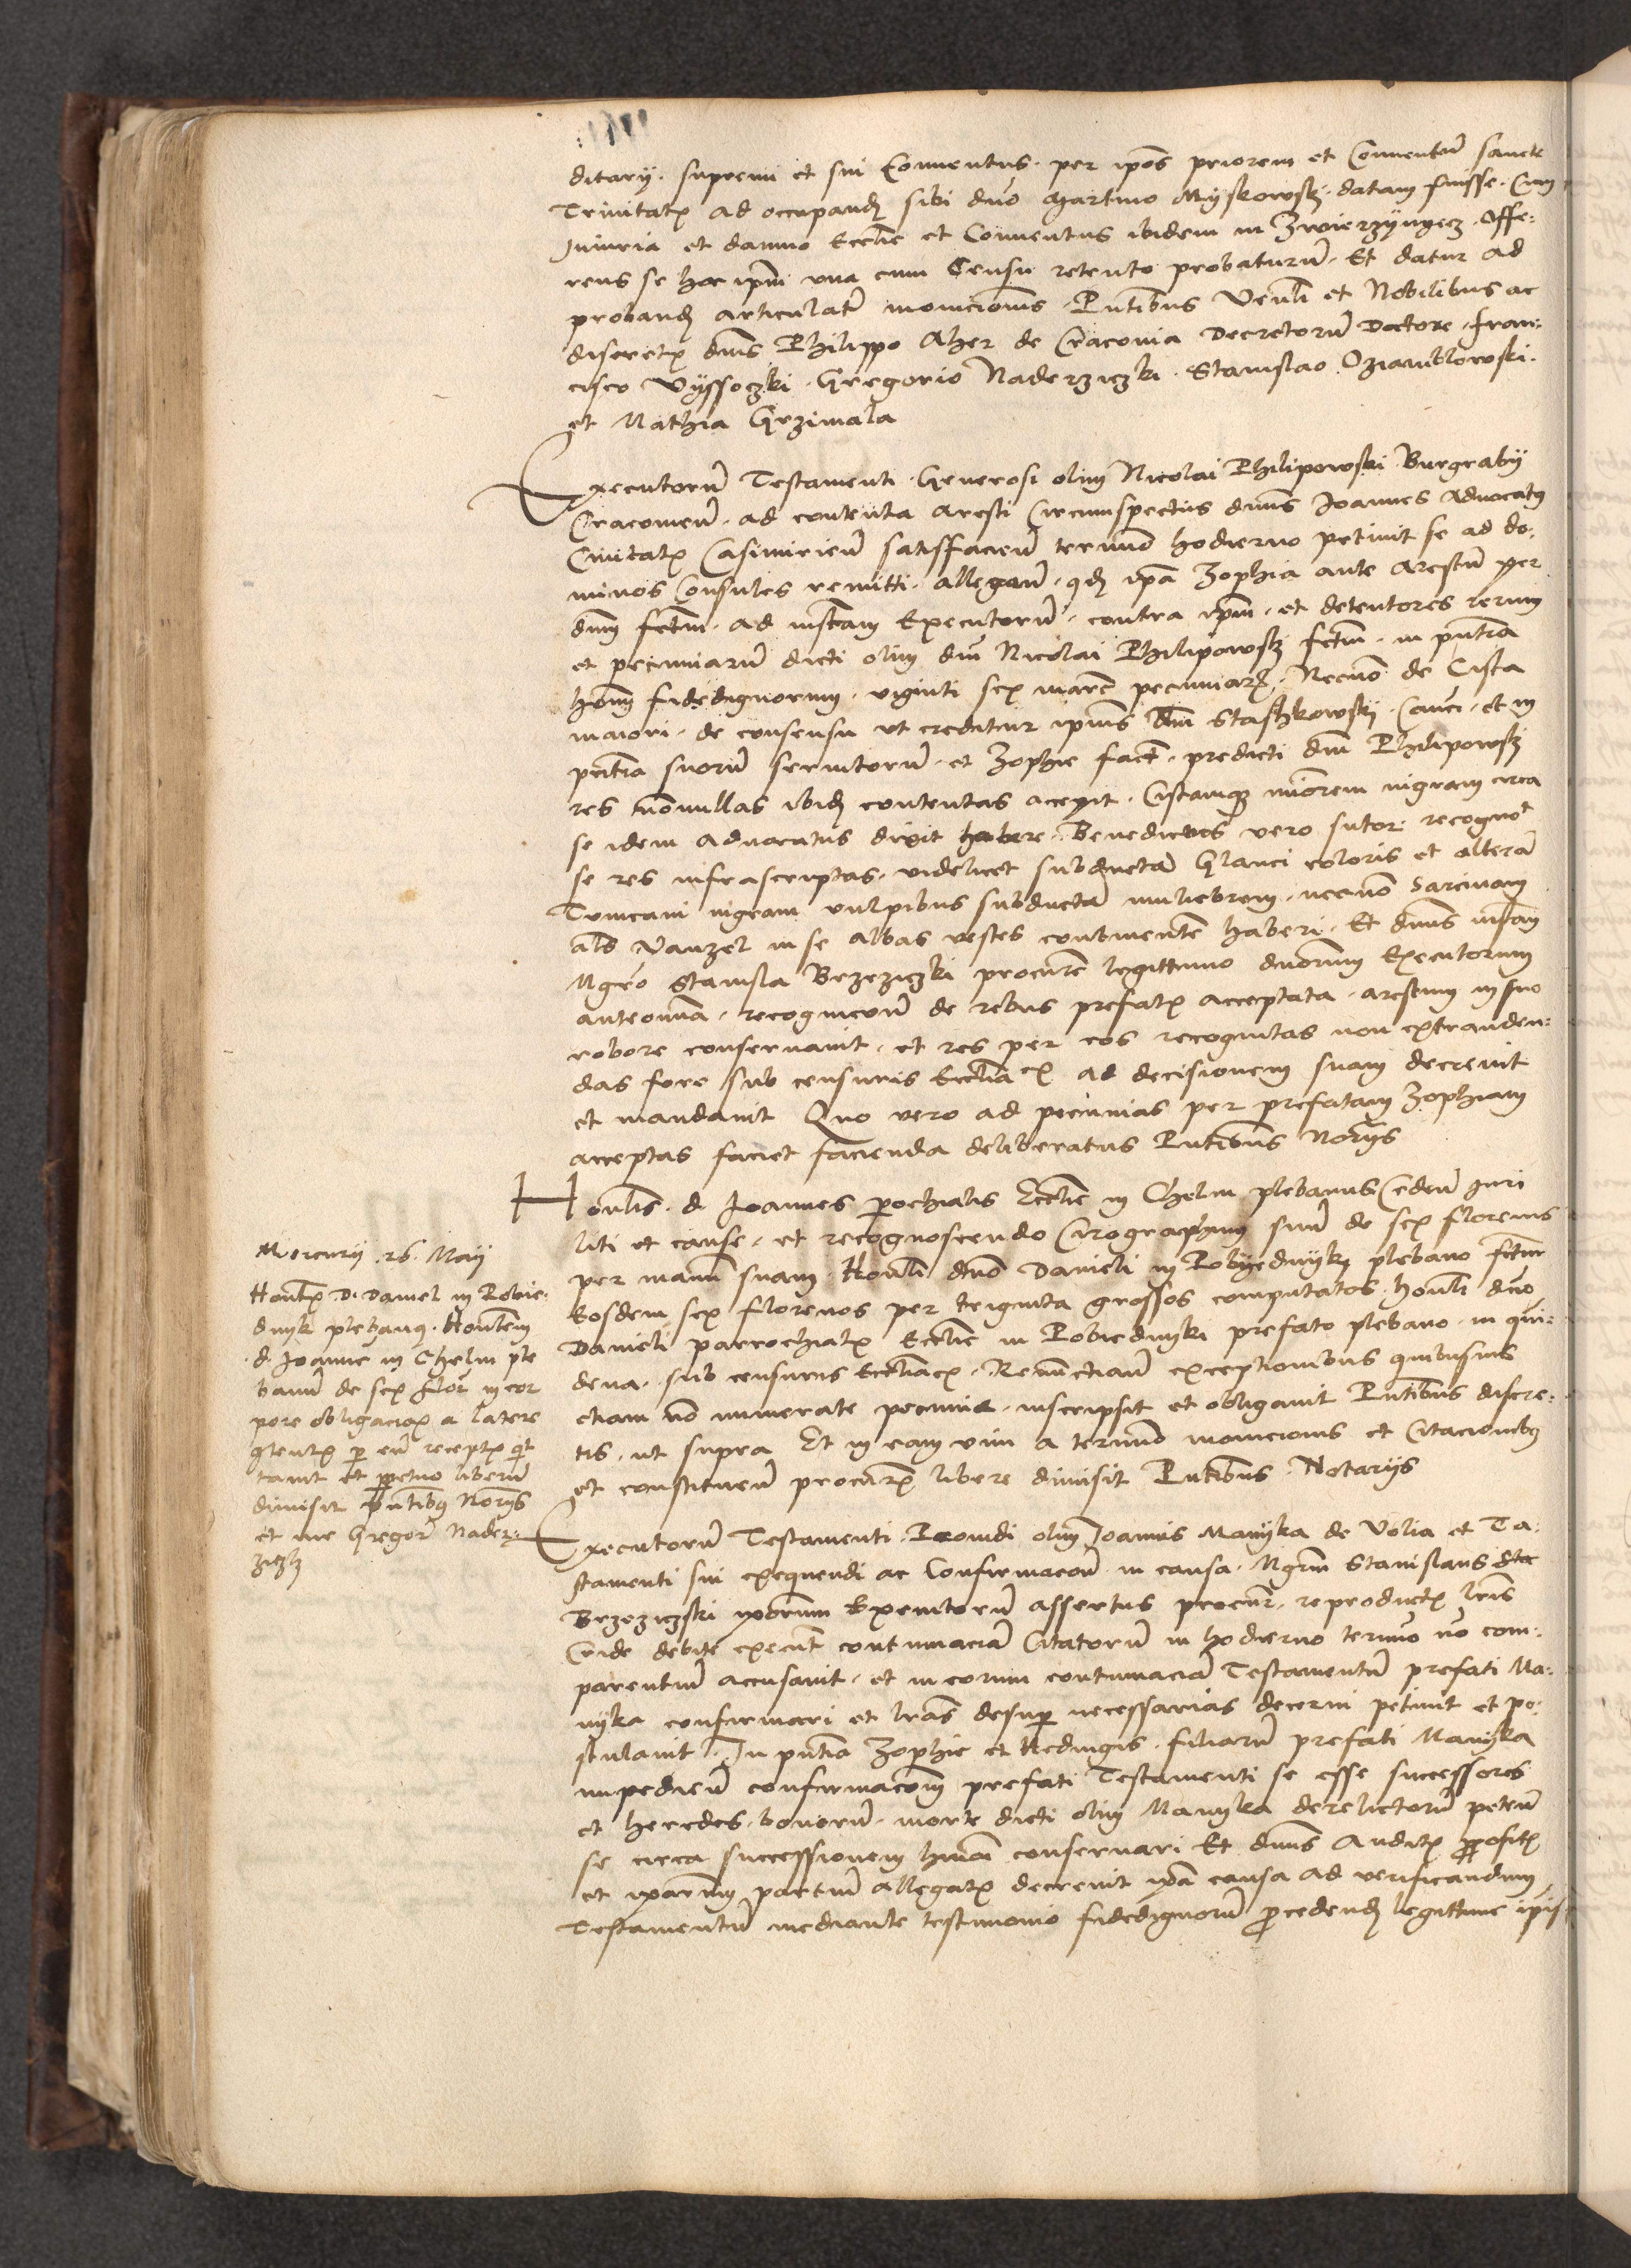 ditarij. supremi et sui Conventus. per ipos priorem et Conventum sancte
Trinitatis ad occupand sibi dno Martino Myskowsky. datam fuisse. Cum
Iniuria et damno Ecclie et Conventus ibidem in Zwierzyngecz. Offe:
rens se hoc ipm una cum Censu retento probaturum. Et datur ad
proband articulatum monicionis. Pntibus Venli et Nobilibus ac
discretis dnis Philippo Aher de Cracovia Decretorum Doctore. Fran:
cisco Vyssoczki. Gregorio Naderziczki. Stanislao Oziamblowski.
et Mathia Grzimala
Executorum Testamenti. Generosi olim Nicolai Philipowski Burgrabij
Cracovien. ad contenta aresti Circumspectus dnus Ioannes Advocatus
Civitatis Casimirien satisfacien termino hodierno petivit se ad do:
minos Consules remitti. allegan. qd ipa Zophia ante arestum per
dnm fctum. ad instam Executorum. contra ipm. et detentores rerum
et pecuniarum dicti olim dni Nicolai Philipowsky fctum. in pntia
hoim fidedignorum. viginti sex marc pecuniar. Necno de Cista
maiori. de consensu ut creditur ipius dni Staszkowski. Canci. et in
pntia suorum servitorum. et Zophie fact. predicti dni Philipowsky
res nonnullas ibid contentas acepit. Cistamque miorem nigram circa
se idem advocatus dixit habere. Benedictus vero sutor recognot
se res infrascriptas. videlicet subductam Glauci coloris et alteram
Tunicam nigram vulpibus subductam muliebrem. necno sarcinam
als Vanzel in se albas vestes continentem haberi. Et dnus instan
Mgro Stanisla Brzeziczki procure legittimo dnorum Executorum
anteomnia. recognicom de rebus prefatis acceptata. arestum in suo
robore conservavit. et res per eos recognitas non extranden:
das fore sub censuris Ecclia cis ad decisionem suam decrevit
et mandavit Quo vero ad pecunias per prefatam Zophiam
acceptas faciet facienda deliberatus Pntibus Norijs
Honlis. d. Ioannes prochialis Ecclie in Chelm plebanus Ceden Iuri
liti et cause. et recognoscendo Cirographum suum de sex florenis
per manum suam. Honli dno Danieli in Pobyednyky plebano fctum
Eosdem sex florenos per triginta grossos computatos. honli dno
Danieli parrochialis Ecclie in Pobiednyki prefato plebano. in qui:
dena. sub censuris Eccliacis. Renunctian exceptionibus quibusvis
etiam no numerate pecunie. inscripsit et obligavit Pntibus discre:
tis. ut supra Et in eam vim a termino monicionis et Citacionibus
et constituen procurem libere dimisit Pntibus. Notarijs
Mercurij .26. Maij
Honlis D. Daniel in Pobie:
dnyk plebanus. Honlem
d. Ioanne in Chelm ple
banum de sex flor in cor
pore obligaciois a latere
qtentis per eum receptis qit
tavit et perpetuo liberum
dimisit pntibus Norijs
et me Gregor Nader:
ziczky
Executorum Testamenti. Providi olim Ioannis Manyka de Volia et Te:
stamenti sui exequendi ac Confirmacom in causa. Mgrum Stanislaus
Brzeziczski ipsorum Executorum assertus procur. reproductis lris
Cride debite execut contumaciam Citatorum in hodierno termino no com:
parentium accusavit. et in eorum contumaciam Testamentum prefati Ma:
nyka confirmari et lras desuper necessarias decerni petivit et po:
stulavit. In pntia Zophie et Hedvigis. filiarum prefati Manyka
impedien confirmacom prefati Testamenti se esse successores
et heredes. bonorum. morte dicti olim Manyka derelictorum peten
se circa successionem hmoi conservari Et dnus Auditis prpositis
et ipsarum partium allegatis decrevit ipa causa ad verificandum
Testamentum mediante testimonio fidedignorum procedend legittime ipis